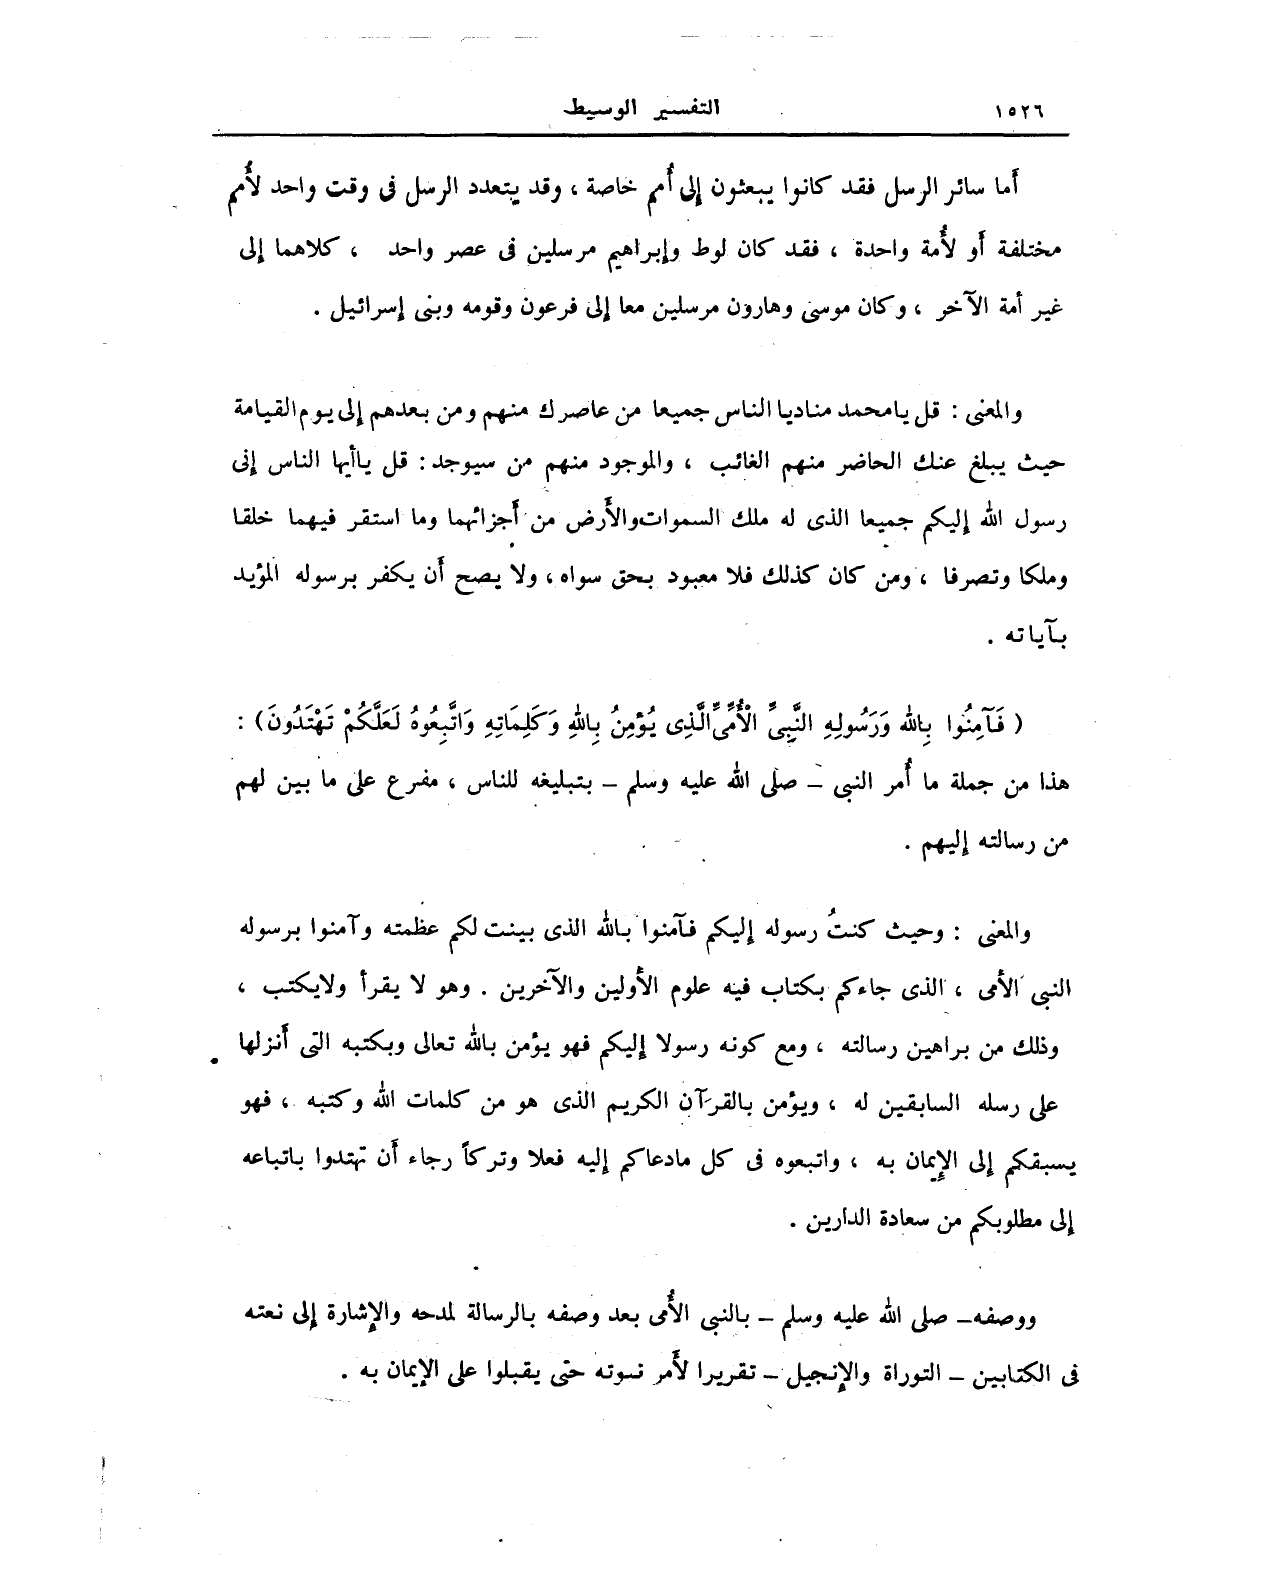 ١٥٢٦ التفسير الوسيط
أما سائر الرسل فقد كانوا يبعثون إلى أُمم خاصة ، وقد يتعدد الرسل فى وقت واحد لأُمم
مختلفة أو لأُمة واحدة ، فقد كان لوط وإبراهيم مرسلين فى عصر واحد ، كلاهما إلى
غير أمة الآخر ، وكان موسى وهارون مرسلين معا إلى فرعون وقومه وبنى إسرائيل .
والمعنى : قل يا محمد مناديا الناس جميعا من عاصرك منهم ومن بعدهم إلى يوم القيامة
حيث يبلغ عنك الحاضر منهم الغائب ، والموجود منهم من سيوجد : قل ياأيها الناس إنى
رسول الله إليكم جميعا الذى له ملك السموات والأرض من أجزائهما وما استقر فيهما خلقا
وملكا وتصرفا ، ومن كان كذلك فلا معبود بحق سواه ، ولا يصح أن يكفر برسوله المؤيد
بآياته .
( فَآمِنُوا بِاللهِ وَرَسُولِهِ النَّبِىِّ الْأُمِّىِّ الَّذِى يُؤْمِنُ بِاللهِ وَكَلِمَاتِهِ وَاتَّبِعُوهُ لَعَلَّكُمْ تَهْتَدُونَ) :
هذا من جملة ما أُمر النبى – صلى الله عليه وسلم – بتبليغه للناس ، مفرع على ما بين لهم
من رسالته إليهم .
والمعنى : وحيث كنتُ رسوله إليكم فآمنوا بالله الذى بينت لكم عظمته وآمنوا برسوله
النبى الأمى ، الذى جاءكم بكتاب فيه علوم الأولين والآخرين . وهو لا يقرأ ولايكتب ،
وذلك من براهين رسالته ، ومع كونه رسولا إليكم فهو يؤمن بالله تعالى وبكتبه التى أنزلها
على رسله السابقين له ، ويؤمن بالقرآن الكريم الذى هو من كلمات الله وكتبه ، فهو
يسبقكم إلى الإيمان به ، واتبعوه فى كل مادعاكم إليه فعلا وتركاً رجاء أن تهتدوا باتباعه
إلى مطلوبكم من سعادة الدارين .
ووصفه– صلى الله عليه وسلم – بالنبى الأُمى بعد وصفه بالرسالة لمدحه والإشارة إلى نعته
فى الكتابين – التوراة والإنجيل – تقريرا لأمر نبوته حتى يقبلوا على الإيمان به .